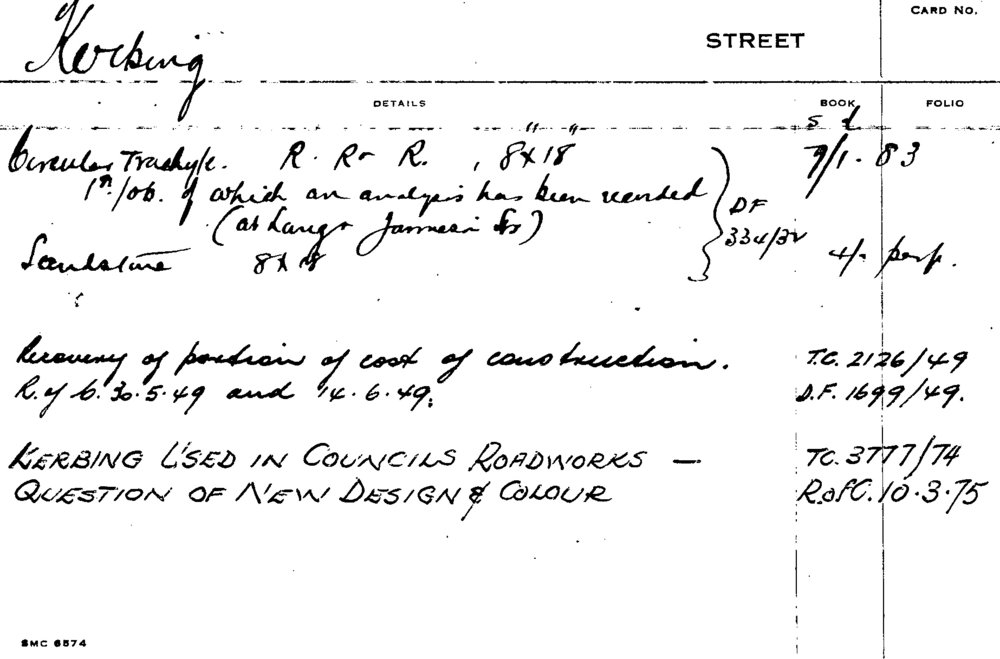 CARD NO.
Kerbing STREET
DETAILS BOOK FOLIO
s d
Circular Trachyte. R. R & R. , 8" x 18" 7/1. 83
1st job. of which an analysis has been recorded
(at Lang & Jamison Sts) DF
334/32
Sandstone 8 x 18 4/- per f.
Recovery of portion of cost of construction. T.C. 2126/49
R. of C. 30.5.49 and 14.6.49. D.F. 1699/49.
KERBING USED IN COUNCILS ROADWORKS — TC. 3777/74
QUESTION OF NEW DESIGN & COLOUR R of C. 10.3.75
SMC 6574